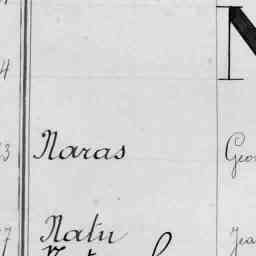 N
4
3 Naras Geor
7 Natu Jea